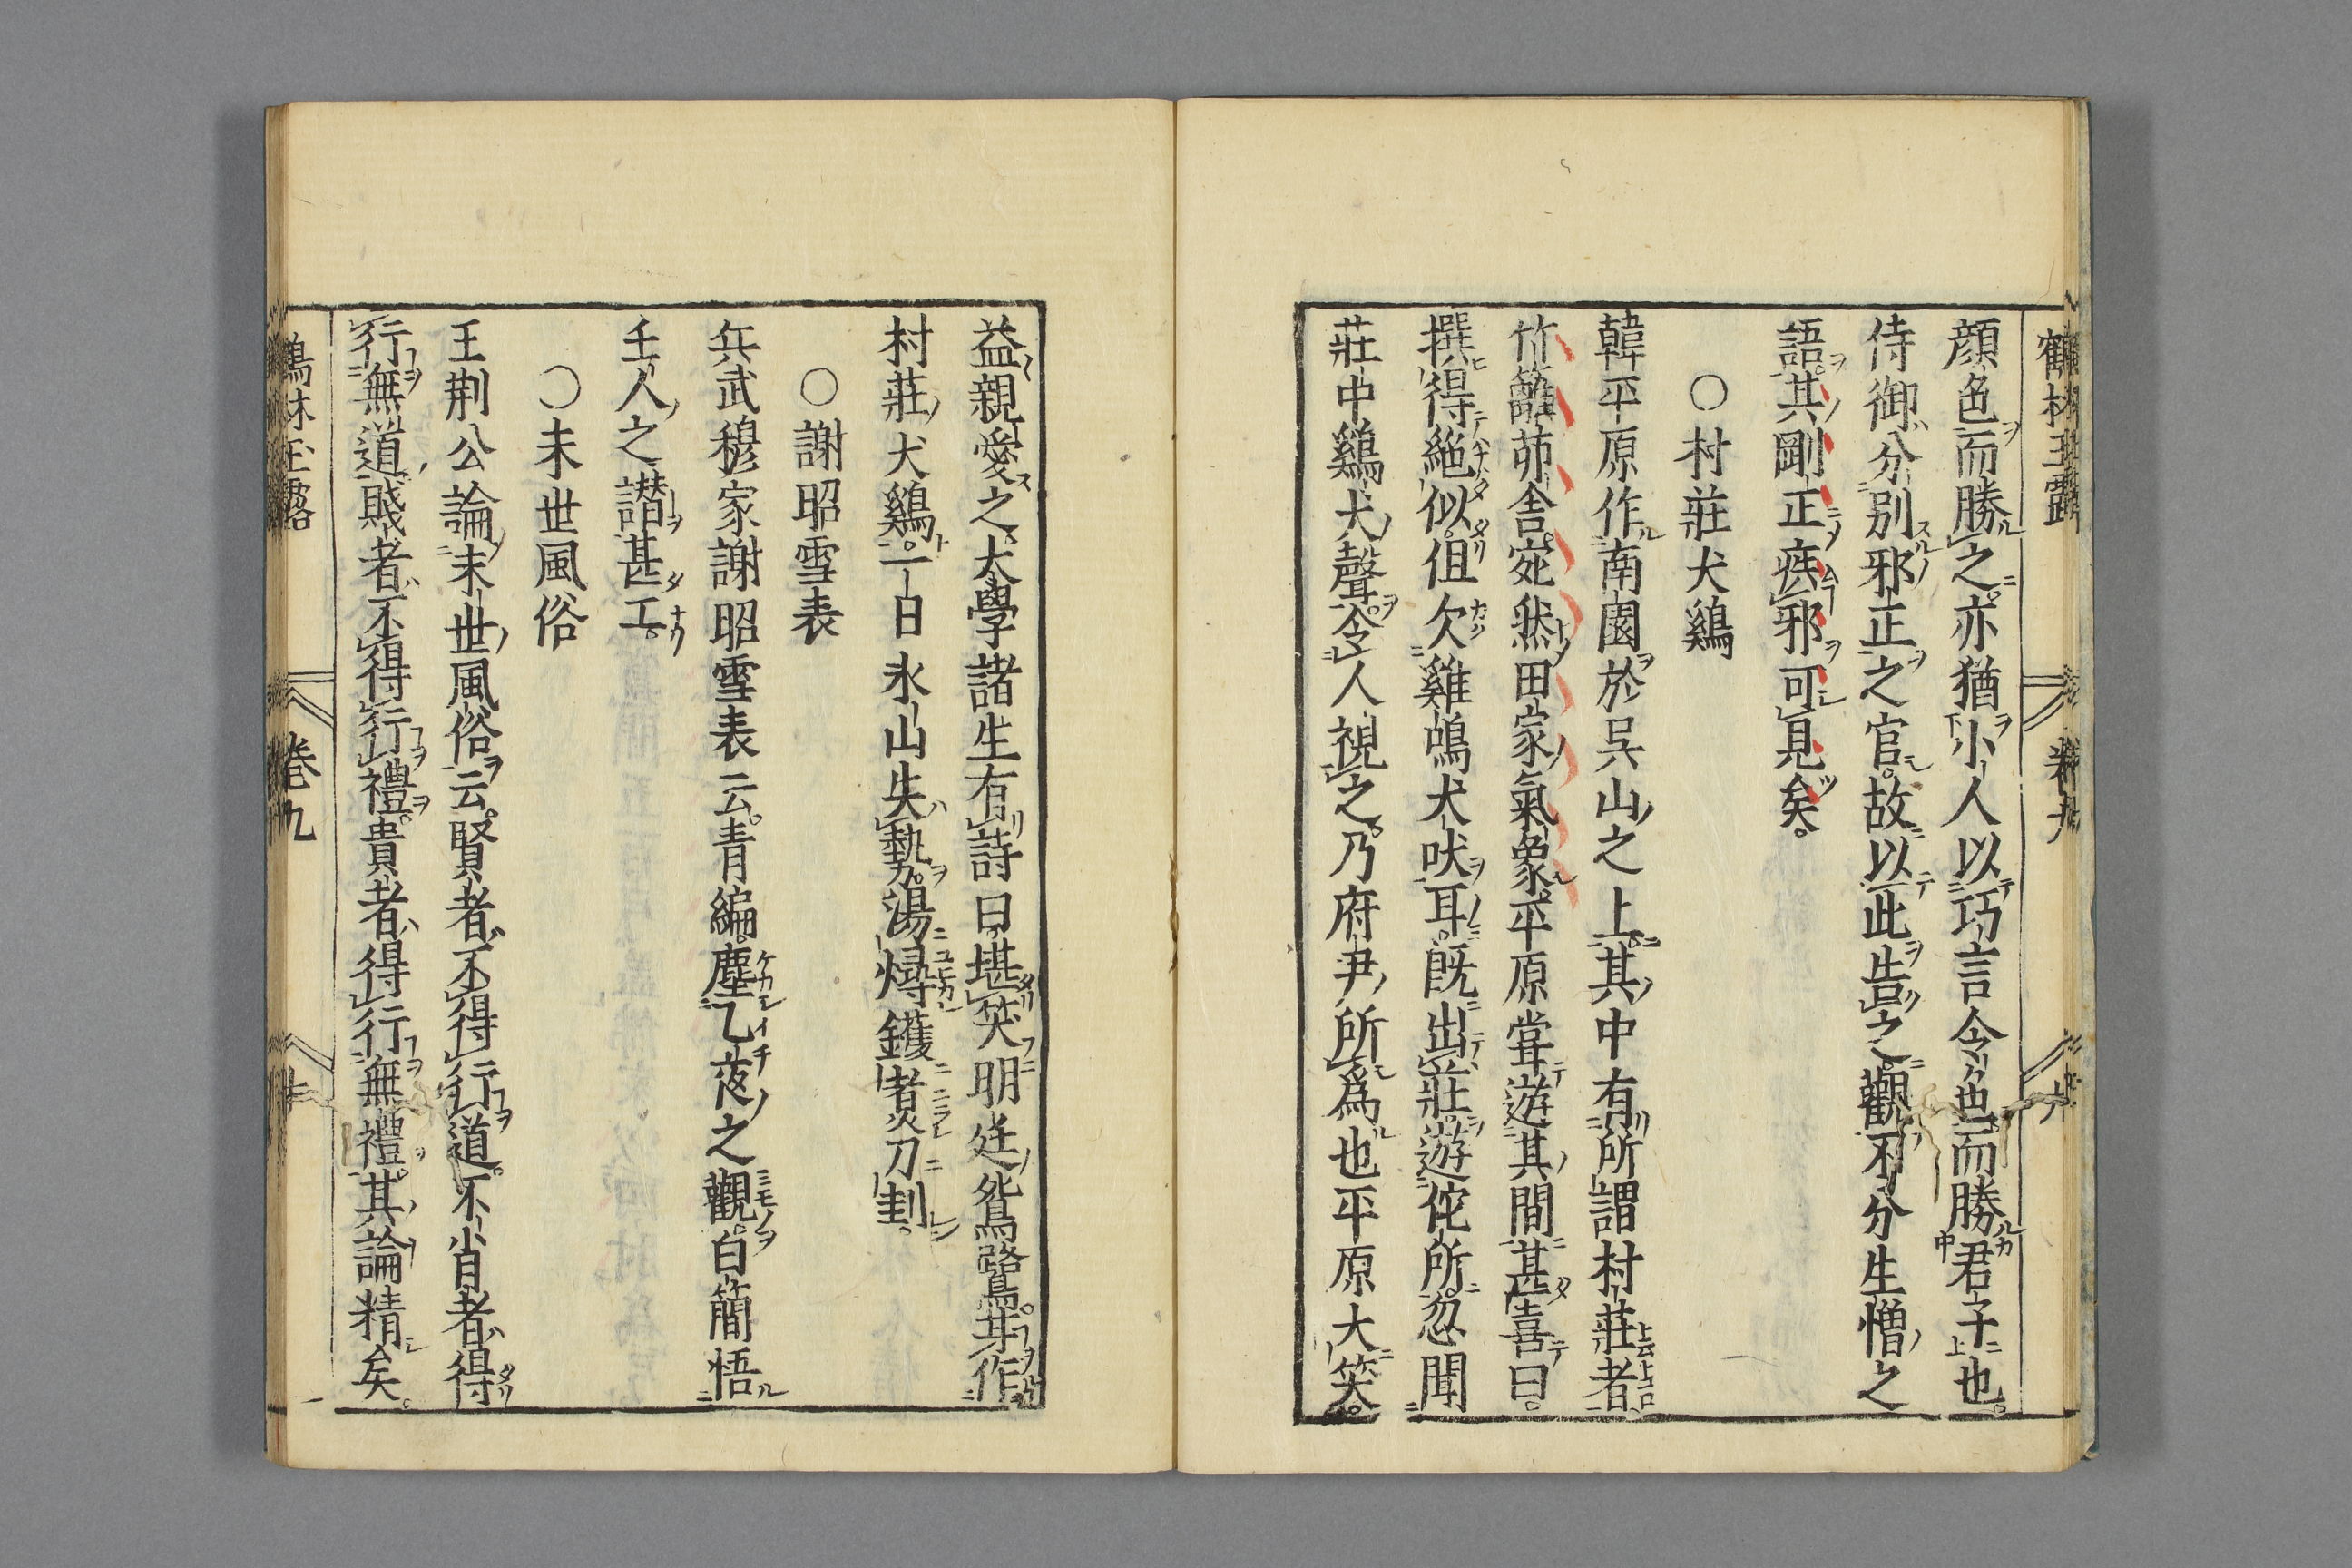 鶴林玉露 卷九
顔色而勝之。亦猶小人以巧言令色而勝君子也。
侍御分別邪正之官。故以此告之。觀不分生憎之
語。其剛正疾邪可見矣。
○村莊犬鷄
韓平原作南園於吳山之上。其中有所謂村莊者。
竹籬茆舍。宛然田家氣象。平原嘗遊其間甚喜曰。
撰得絶似。但欠雞鳴犬吠耳。旣出莊遊佗所。忽聞
莊中鷄犬聲。令人視之。乃府尹所爲也平原大笑。
益親愛之。太學諸生有詩曰。堪笑明廷鴛鷺。甘作
村莊犬鷄。一日氷山失勢。湯燖鑊煮刀刲。
○謝昭雪表
兵武穆家謝昭雪表云。青編塵乙夜之觀。白簡悟
壬人之譖。甚工。
○末世風俗
王荆公論末世風俗云。賢者不得行道。不肖者得
行無道。賤者不得行禮。貴者得行無禮。其論精矣。
鶴林玉露 卷九 十